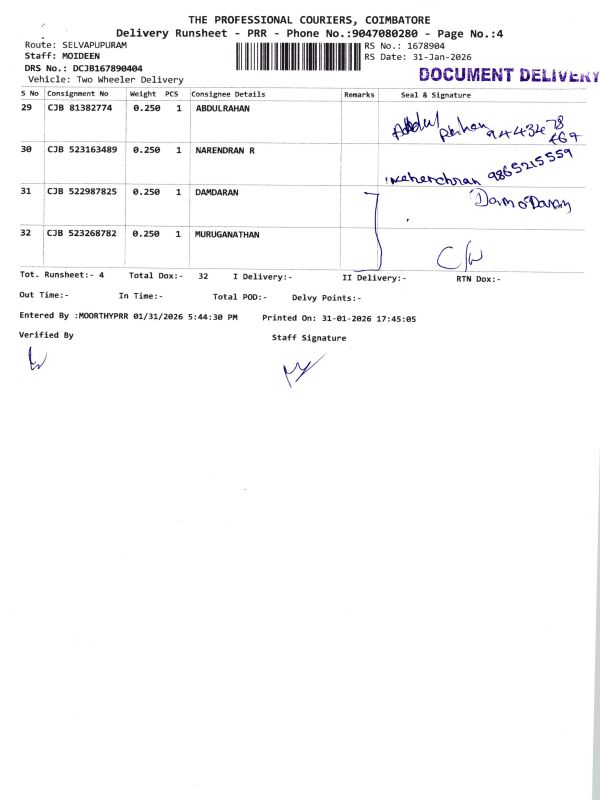 THE PROFESSIONAL COURIERS, COIMBATORE
Delivery Runsheet - PRR - Phone No.:9047080280 - Page No.:4
Route: SELVAPUPURAM
Staff: MOIDEEN
DRS No.: DCJB167890404
Vehicle: Two Wheeler Delivery
RS No.: 1678904
RS Date: 31-Jan-2026
DOCUMENT DELIVERY
S No Consignment No Weight PCS Consignee Details Remarks Seal & Signature
29 CJB 81382774 0.250 1 ABDULRAHAN
Abdul Rahan 9443478
467
30 CJB 523163489 0.250 1 NARENDRAN R
9865215559
31 CJB 522987825 0.250 1 DAMDARAN
Damodaran
32 CJB 523268782 0.250 1 MURUGANATHAN
Tot. Runsheet:- 4 Total Dox:- 32 I Delivery:- II Delivery:- RTN Dox:-
Out Time:- In Time:- Total POD:- Delvy Points:-
Entered By :MOORTHYPRR 01/31/2026 5:44:30 PM Printed On: 31-01-2026 17:45:05
Verified By Staff Signature